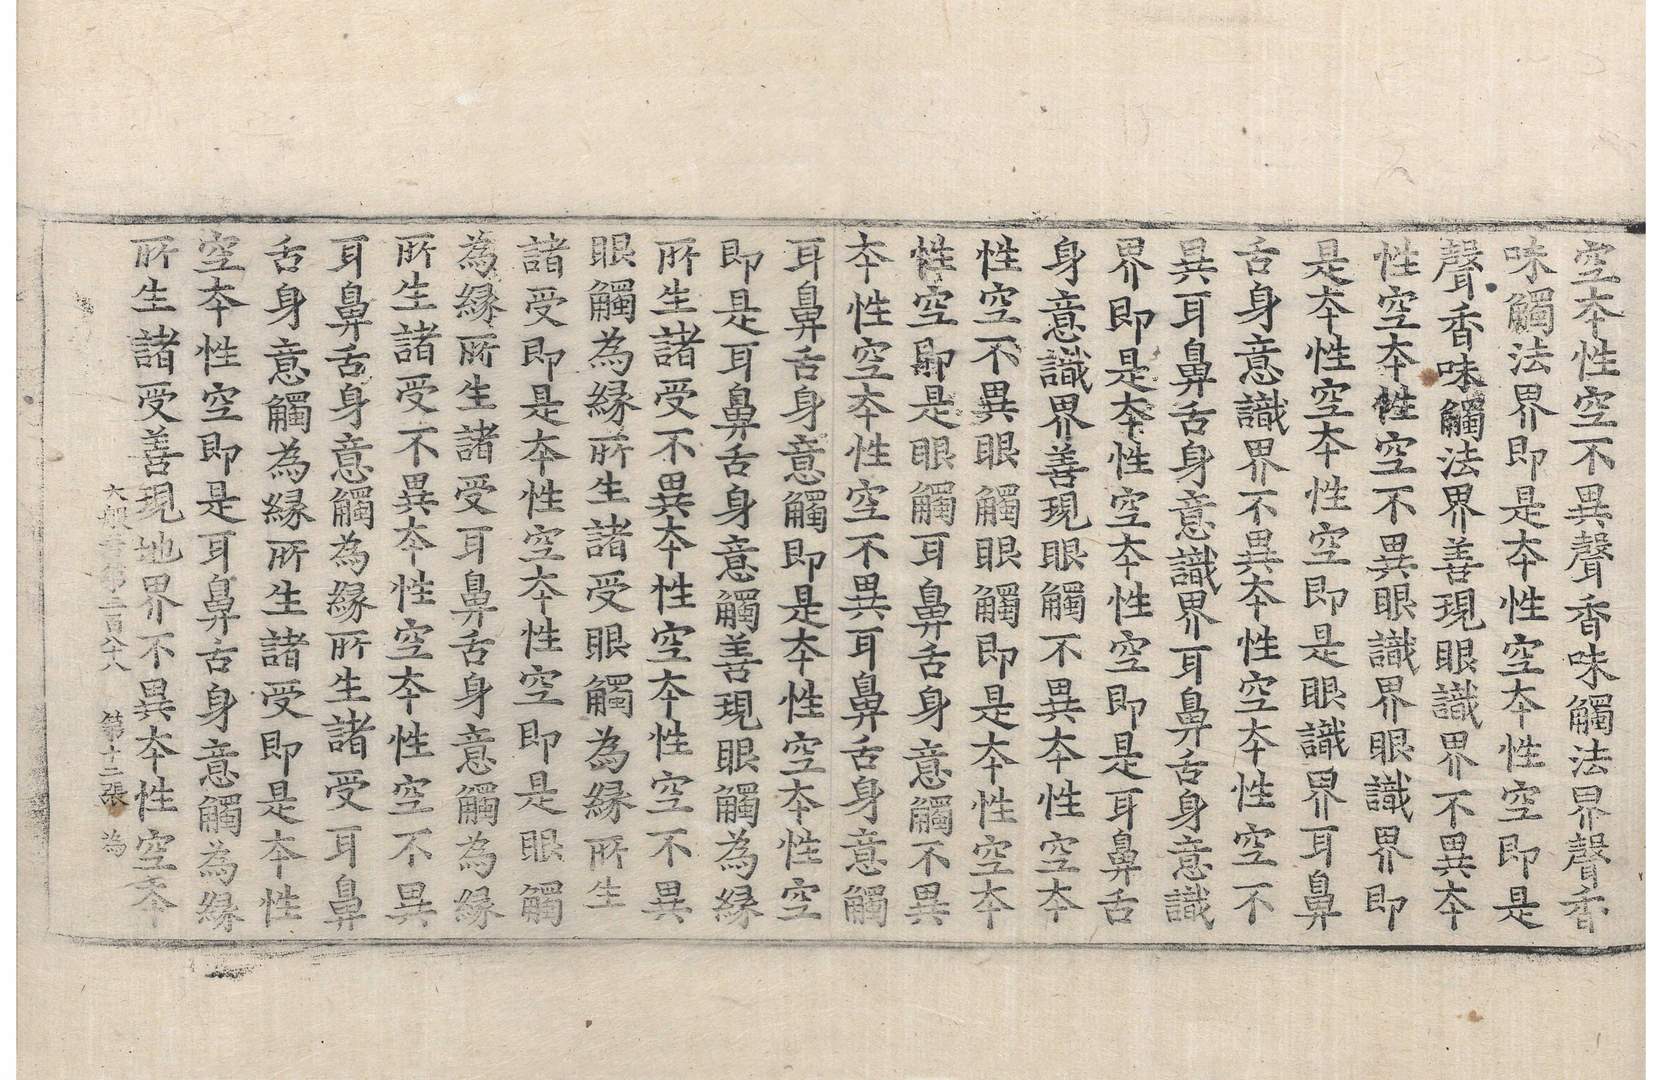 空本性空不異聲香味觸法界聲香
味觸法界即是本性空本性空即是
聲香味觸法界善現眼識界不異本
性空本性空不異眼識界眼識界即
是本性空本性空即是眼識界耳鼻
舌身意識界不異本性空本性空不
異耳鼻舌身意識界耳鼻舌身意識
界即是本性空本性空即是耳鼻舌
身意識界善現眼觸不異本性空本
性空不異眼觸眼觸即是本性空本
性空即是眼觸耳鼻舌身意觸不異
本性空本性空不異耳鼻舌身意觸
耳鼻舌身意觸即是本性空本性空
即是耳鼻舌身意觸善現眼觸為縁
所生諸受不異本性空本性空不異
眼觸為縁所生諸受眼觸為縁所生
諸受即是本性空本性空即是眼觸
為縁所生諸受耳鼻舌身意觸為縁
所生諸受不異本性空本性空不異
耳鼻舌身意觸為縁所生諸受耳鼻
舌身意觸為縁所生諸受即是本性
空本性空即是耳鼻舌身意觸為縁
所生諸受善現地界不異本性空本
大般若第三百八十八 第十二張 為